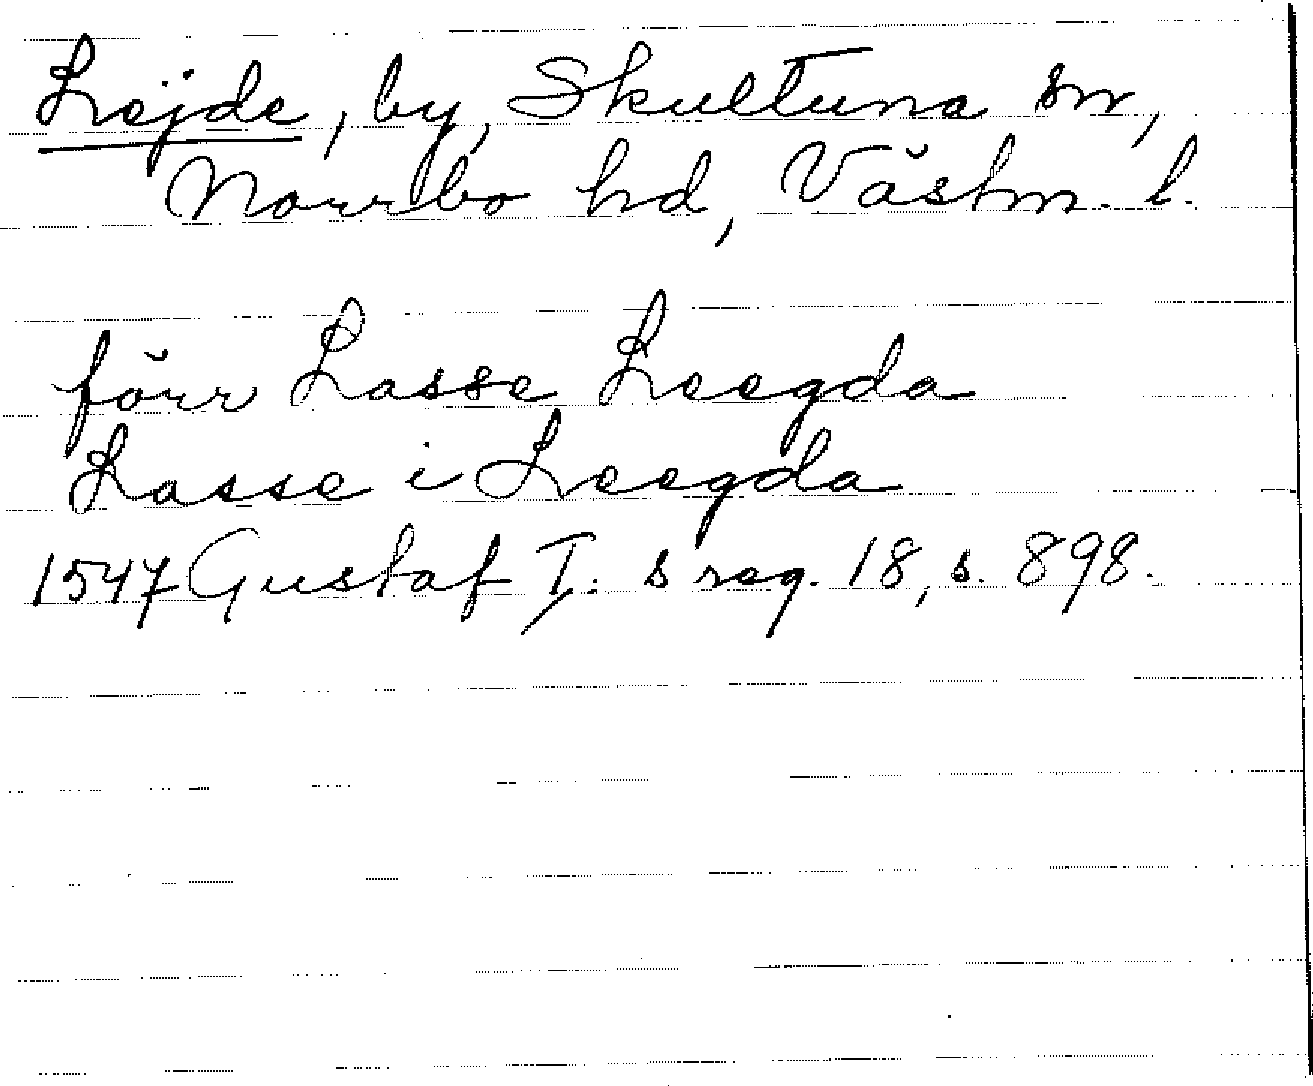 Lejde, by, Skultuna sn,
Norrbo hd, Västm. l.
förr Lasse Leegda
Lasse i Leegda
1547 Gustaf I:s reg. 18, s. 898.